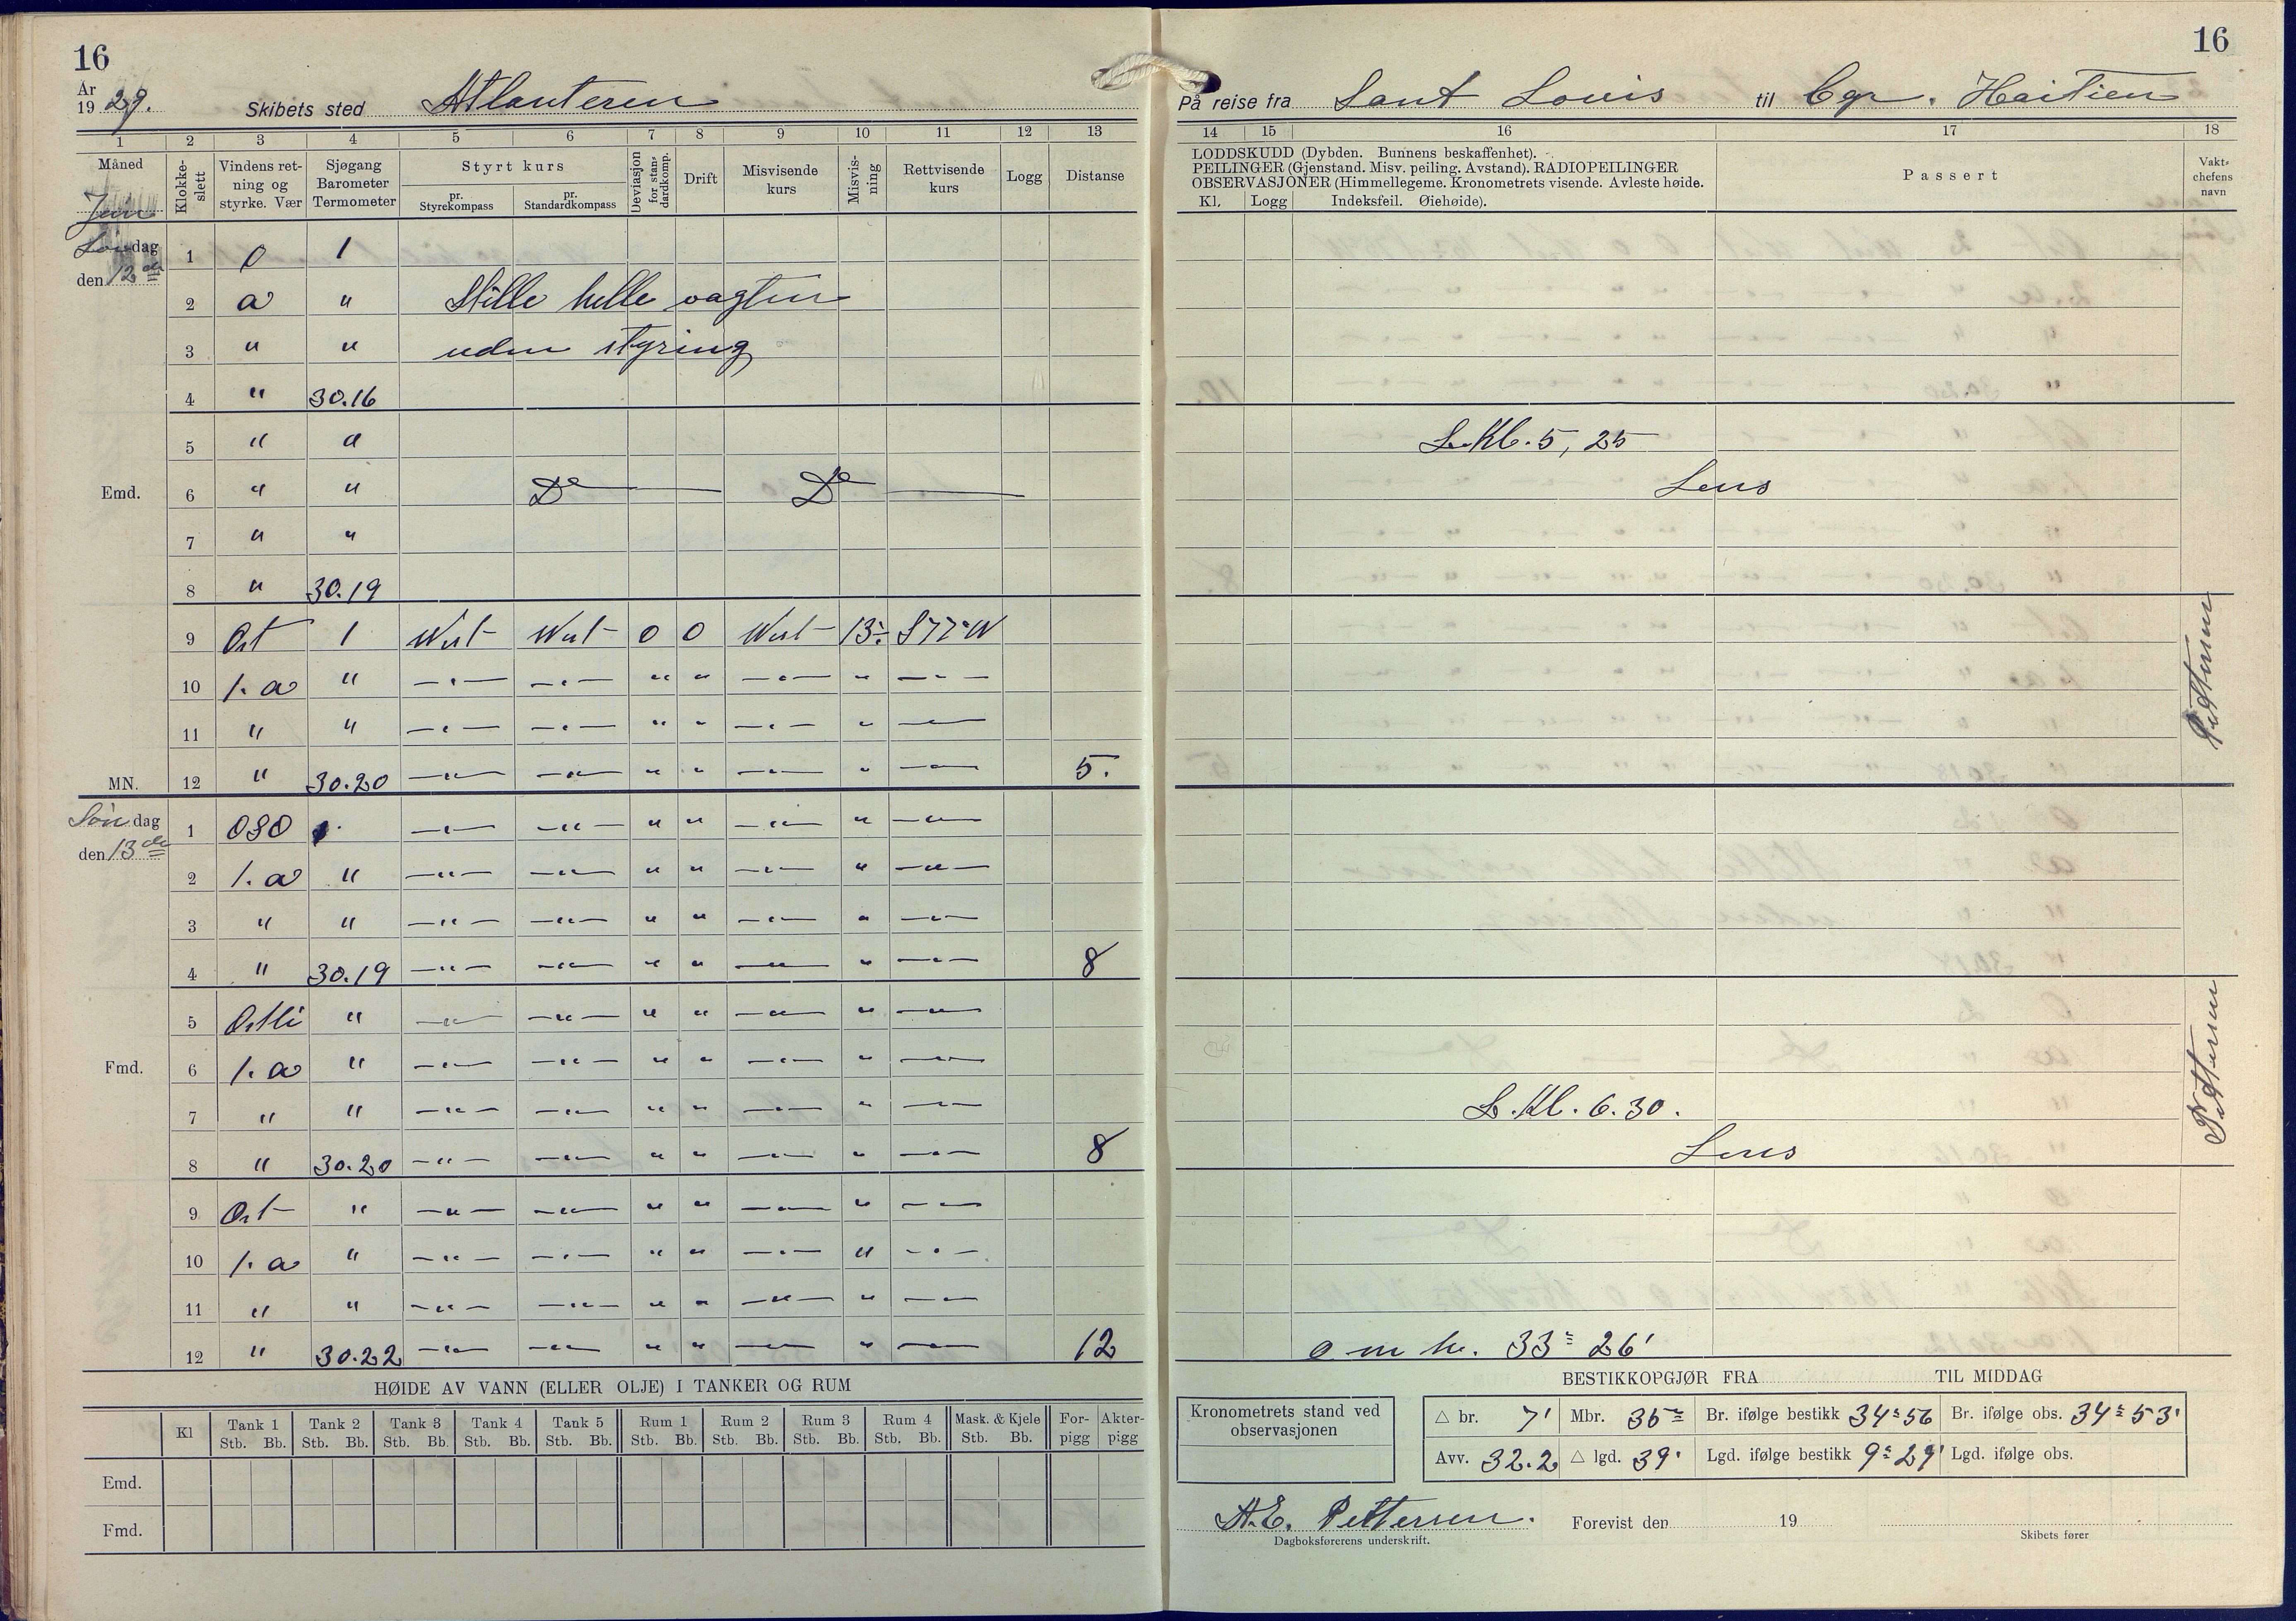 16
16
År
19 29.
Skibets sted Atlanteren
På reise fra Sant Louis til Cap. Haitien
1 2 3 4 5 6 7 8 9 10 11 12 13
14 15 16 17 18
Måned
Klokke-
slett
Vindens ret-
ning og
styrke. Vær
Sjøgang
Barometer
Termometer
Styrt kurs
pr.
Styrekompass
pr.
Standardkompass
Deviasjon
for stan-
dardkomp.
Drift
Misvisende
kurs
Misvis-
ning
Rettvisende
kurs
Logg
Distanse
LODDSKUDD (Dybden. Bunnens beskaffenhet).
PEILINGER (Gjenstand. Misv. peiling. Avstand). RADIOPEILINGER
OBSERVASJONER (Himmellegeme. Kronometrets visende. Avleste høide.
Kl. Logg Indeksfeil. Øiehøide).
Passert
Vakt-
chefens
navn
dag
den 12 de
1 0 1
2 a " Stille helle vagten
3 " " uden styring
4 " 30.16
5 " " L. Kl. 5,25
Emd. 6 " " Do — Do — Lens
7 " "
8 " 30.19
9 Ost 1 West West 0 0 West 13° S77°W
10 1. a " —"— —"— " " —"— " —"—
11 " " —"— —"— " " —"— " —"—
MN. 12 " 30.20 —"— —"— " " —"— " —"— 5.
Pettersen
Søn dag
den 13 de
1 OSO 1. —"— —"— " " —"— " —"—
2 1. a " —"— —"— " " —"— " —"—
3 " " —"— —"— " " —"— " —"—
4 " 30.19 —"— —"— " " —"— " —"— 8
5 Ostli " —"— —"— " " —"— " —"—
Fmd. 6 1. a " —"— —"— " " —"— " —"—
7 " " —"— —"— " " —"— " —"— L. Kl. 6.30.
8 " 30.20 —"— —"— " " —"— " —"— 8 Lens
Pettersen
9 Ost " —"— —"— " " —"— " —"—
10 1. a " —"— —"— " " —"— " —"—
11 " " —"— —"— " " —"— " —"—
12 " 30.22 —"— —"— " " —"— " —"— 12 o m h. 33° 26'
HØIDE AV VANN (ELLER OLJE) I TANKER OG RUM
Kl
Tank 1
Stb. Bb.
Tank 2
Stb. Bb.
Tank 3
Stb. Bb.
Tank 4
Stb. Bb.
Tank 5
Stb. Bb.
Rum 1
Stb. Bb.
Rum 2
Stb. Bb.
Rum 3
Stb. Bb.
Rum 4
Stb. Bb.
Mask. & Kjele
Stb. Bb.
For-
pigg
Akter-
pigg
Emd.
Fmd.
BESTIKKOPGJØR FRA TIL MIDDAG
Kronometrets stand ved
observasjonen
△ br. 7' Mbr. 35° Br. ifølge bestikk 34° 56 Br. ifølge obs. 34° 53'
Avv. 32.2 △ lgd. 39' Lgd. ifølge bestikk 9° 29' Lgd. ifølge obs.
A.E. Pettersen.
Dagboksførerens underskrift.
Forevist den 19
Skibets fører